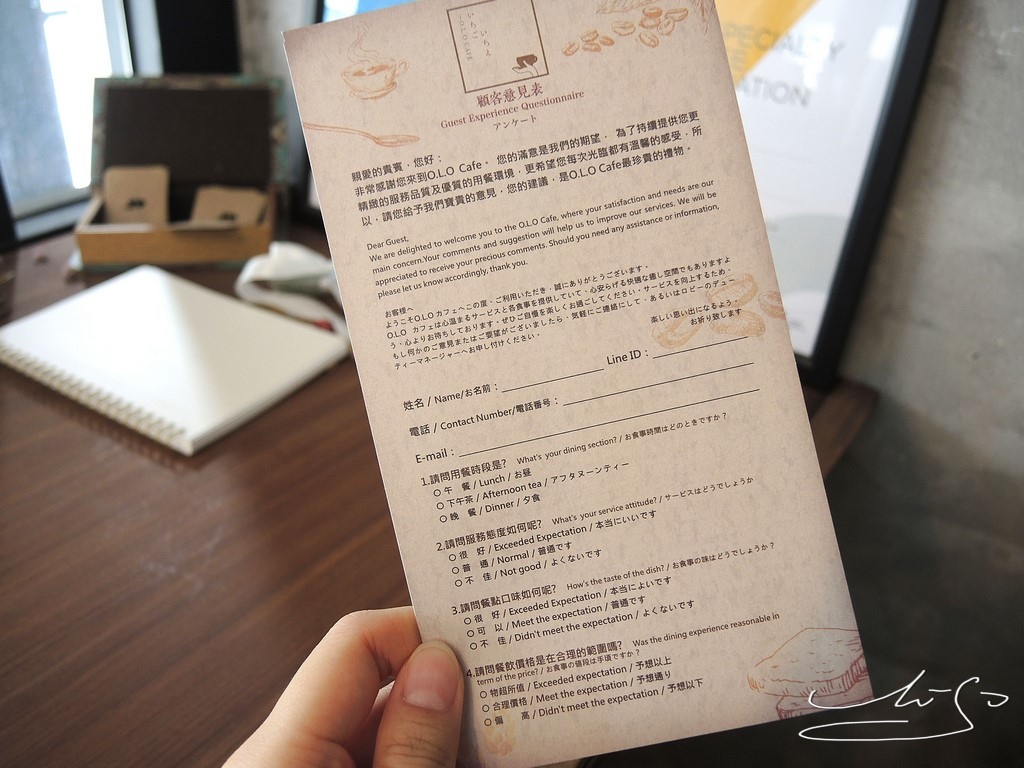 いちご いちえ
O.L.O CAFE
顧客意見表
Guest Experience Questionnaire
アンケート
親愛的貴賓，您好：
非常感謝您來到O.L.O Cafe。 您的滿意是我們的期望， 為了持續提供您更
精緻的服務品質及優質的用餐環境，更希望您每次光臨都有溫馨的感受，所
以，請您給予我們寶貴的意見，您的建議，是O.L.O Cafe最珍貴的禮物。
Dear Guest,
We are delighted to welcome you to the O.L.O Cafe, where your satisfaction and needs are our
main concern.Your comments and suggestion will help us to improve our services. We will be
appreciated to receive your precious comments. Should you need any assistance or information,
please let us know accordingly, thank you.
お客様へ
ようこそO.L.O カフェへこの度、ご利用いただき、誠にありがとうございます。
O.L.O カフェは心温まるサービスと各食事を提供していて、心安らげる快適な癒し空間でもありますよ
う、心よりお待ちしております。ぜひご自慢を楽しくお過ごしてください。サービスを向上するため、
もし何かのご意見またはご要望がございましたら、気軽にご連絡にして、あるいはロビーのデュー
ティーマネージャーへお申し付けください。
楽しい思い出になるよう、
お祈り致します
姓名 / Name/お名前： Line ID：
電話 / Contact Number/電話番号：
E-mail：
1.請問用餐時段是? What's your dining section? / お食事時間はどのときですか？
○ 午 餐 / Lunch / お昼
○ 下午茶 / Afternoon tea / アフタヌーンティー
○ 晚 餐 / Dinner / 夕食
2.請問服務態度如何呢? What's your service attitude? / サービスはどうでしょうか
○ 很 好 / Exceeded Expectation / 本当にいいです
○ 普 通 / Normal / 普通です
○ 不 佳 / Not good / よくないです
3.請問餐點口味如何呢? How's the taste of the dish? / お食事の味はどうでしょうか？
○ 很 好 / Exceeded Expectation / 本当によいです
○ 可 以 / Meet the expectation / 普通です
○ 不 佳 / Didn't meet the expectation / よくないです
4.請問餐飲價格是在合理的範圍嗎? Was the dining experience reasonable in
term of the price? / お食事の値段は手頃ですか？
○ 物超所值 / Exceeded expectation / 予想以上
○ 合理價格 / Meet the expectation / 予想通り
○ 偏 高 / Didn't meet the expectation / 予想以下